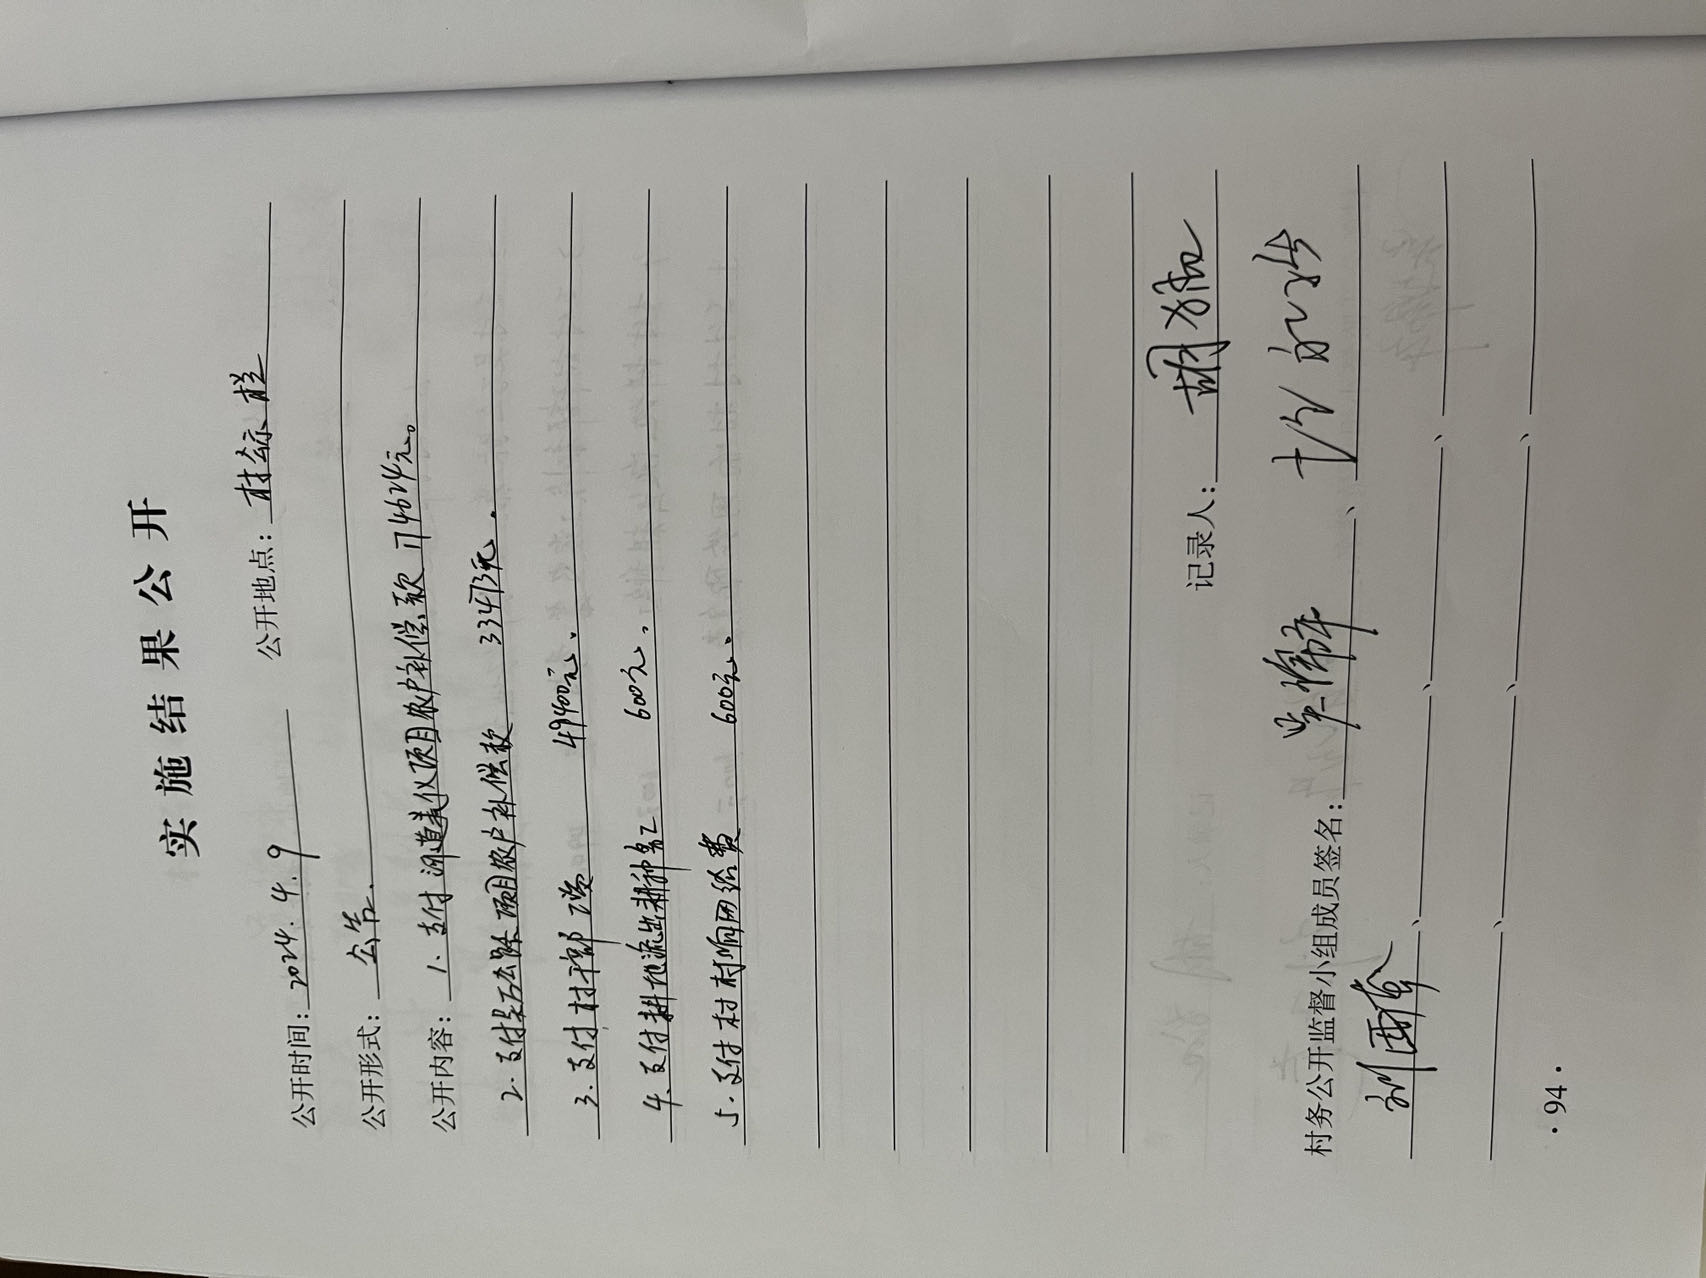 实施结果公开
公开时间：2024.4.9 公开地点：村公示栏
公开形式：公告.
公开内容：1.支付河道美仪项目农户补偿款 174624元。
2.支付 项目农户补偿款 33473元.
3.支付村干部工资 49400元、
4.支付耕地流出耕种
600元、
5.支付村 经费 600元、
记录人：胡
村务公开监督小组成员签名：
刘
·94·